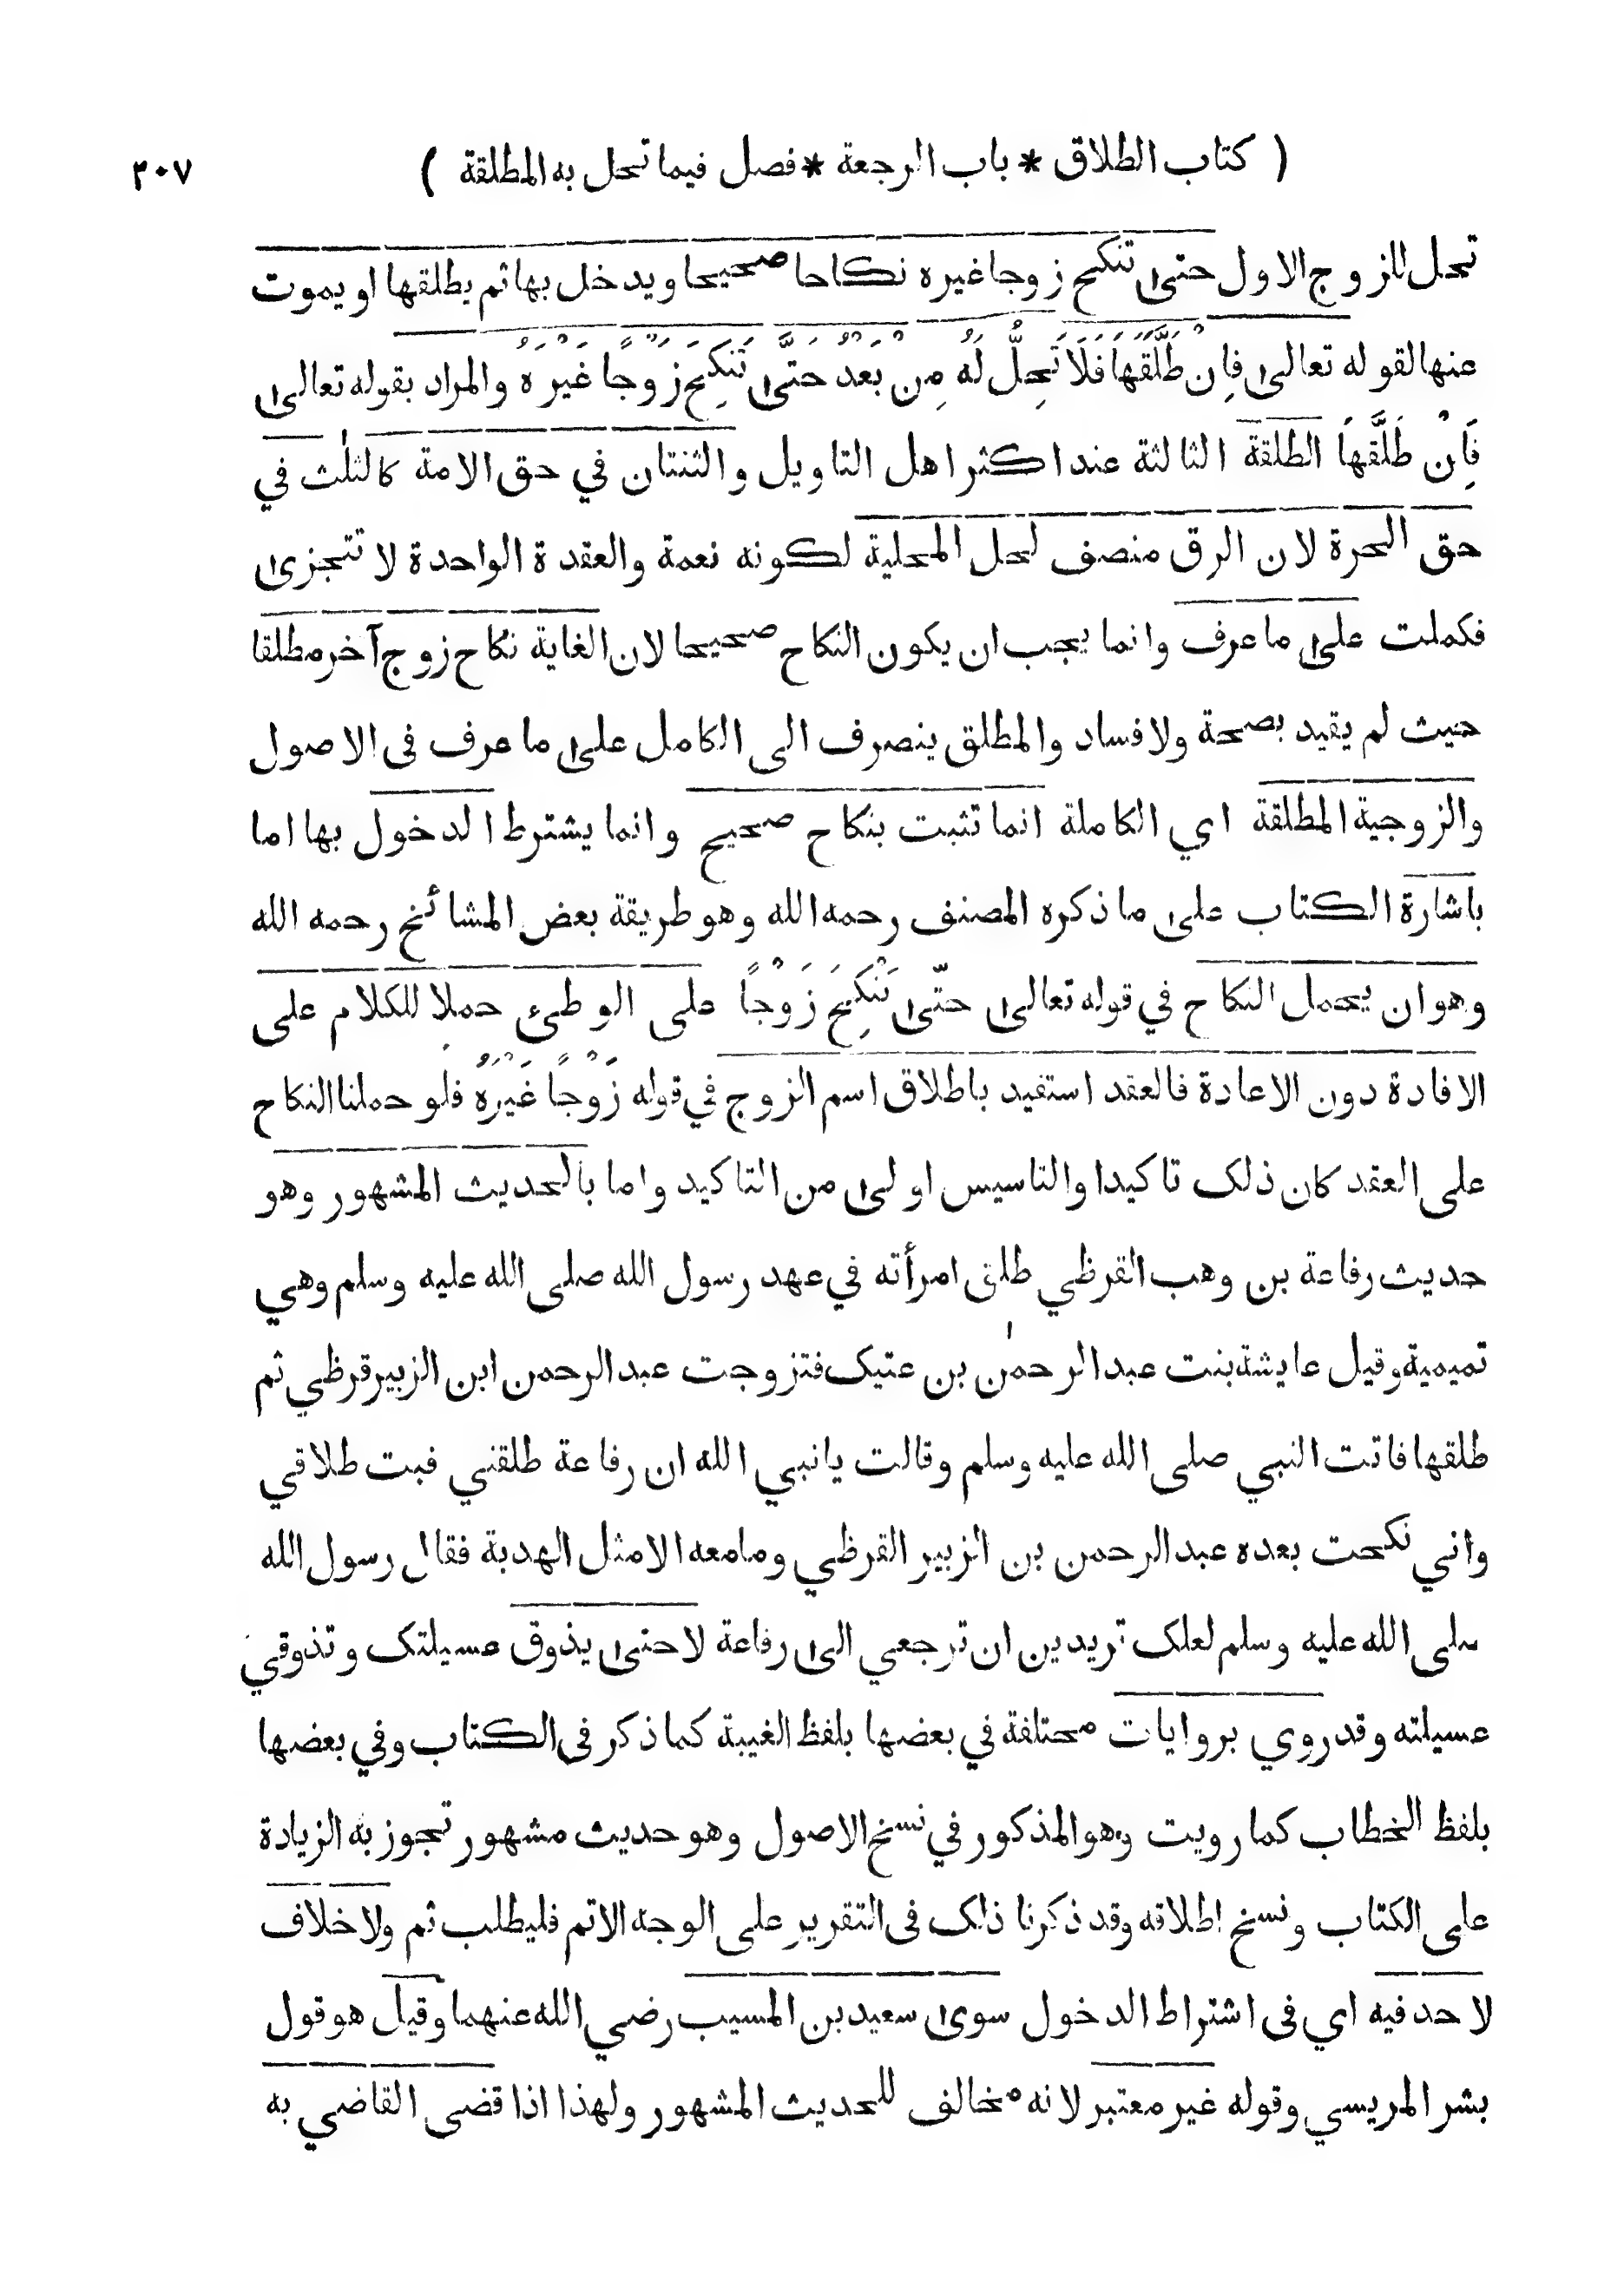 ( كتاب الطلاق * باب الرجعة * فصل فيما تحل به المطلقة ) ٣٠٧
تحل للزوج الاول حتىٰ تنكح زوجا غيره نكاحا صحيحا ويدخل بها ثم يطلقها او يموت
عنها لقوله تعالىٰ فَاِنْ طَلَّقَهَا فَلَا تَحِلُّ لَهُ مِنْ بَعْدُ حَتَّىٰ تَنْكِحَ زَوْجًا غَيْرَهُ والمراد بقوله تعالىٰ
فَاِنْ طَلَّقَهَا الطلقة الثالثة عند اكثر اهل التاويل والثنتان في حق الامة كالثلٰث في
حق الحرة لان الرق منصف لحل المحلية لكونه نعمة والعقدة الواحدة لا تتجزىٰ
فكملت علىٰ ما عرف وانما يجب ان يكون النكاح صحيحا لان الغاية نكاح زوج آخر مطلقا
حيث لم يقيد بصحة ولا فساد والمطلق ينصرف الى الكامل علىٰ ما عرف فى الاصول
والزوجية المطلقة اي الكاملة انما تثبت بنكاح صحيح وانما يشترط الدخول بها اما
باشارة الكتاب علىٰ ما ذكره المصنف رحمه الله وهو طريقة بعض المشائخ رحمه الله
وهو ان يحمل النكاح في قوله تعالىٰ حتّىٰ تَنْكِحَ زَوْجًا على الوطىء حملا للكلام على
الافادة دون الاعادة فالعقد استفيد باطلاق اسم الزوج في قوله زَوْجًا غَيْرَهُ فلو حملنا النكاح
على العقد كان ذلك تاكيدا والتاسيس اولىٰ من التاكيد واما بالحديث المشهور وهو
حديث رفاعة بن وهب القرظي طلق امرأته في عهد رسول الله صلى الله عليه وسلم وهي
تميمية وقيل عايشة بنت عبد الرحمٰن بن عتيك فتزوجت عبد الرحمن ابن الزبير قرظي ثم
طلقها فاتت النبي صلى الله عليه وسلم وقالت يا نبي الله ان رفاعة طلقني فبت طلاقي
واني نكحت بعده عبد الرحمن بن الزبير القرظي وما معه الا مثل الهدبة فقال رسول الله
صلى الله عليه وسلم لعلك تريدين ان ترجعي الىٰ رفاعة لا حتىٰ يذوق عسيلتك وتذوقي
عسيلته وقد روي بروايات مختلفة في بعضها بلفظ الغيبة كما ذكر فى الكتاب وفي بعضها
بلفظ الخطاب كما رويت وهو المذكور في نسخ الاصول وهو حديث مشهور تجوز به الزيادة
على الكتاب ونسخ اطلاقه وقد ذكرنا ذلك فى التقرير على الوجه الاتم فليطلب ثم ولا خلاف
لاحد فيه اي فى اشتراط الدخول سوىٰ سعيد بن المسيب رضي الله عنهما وقيل هو قول
بشر المريسي وقوله غير معتبر لانه مخالف للحديث المشهور ولهذا اذا قضى القاضي به